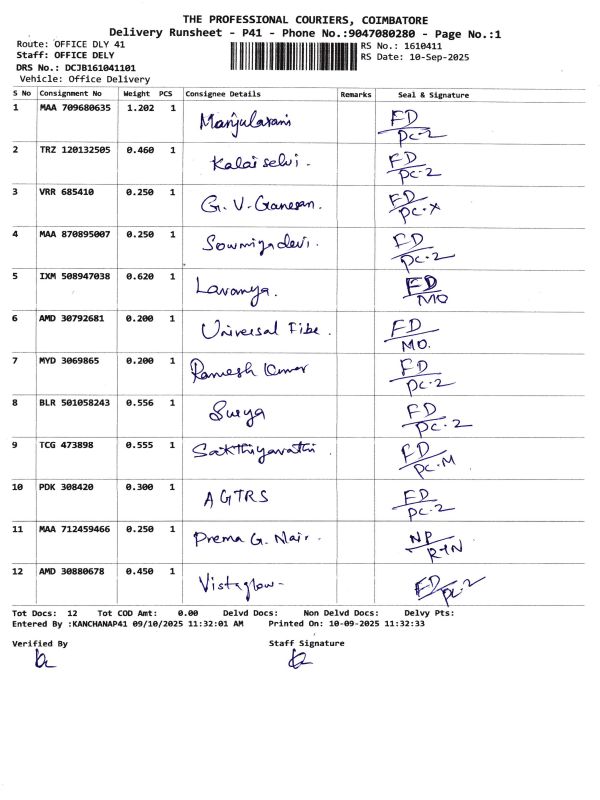 THE PROFESSIONAL COURIERS, COIMBATORE
Delivery Runsheet - P41 - Phone No.:9047080280 - Page No.:1
Route: OFFICE DLY 41 RS No.: 1610411
Staff: OFFICE DELY RS Date: 10-Sep-2025
DRS No.: DCJB161041101
Vehicle: Office Delivery
S No Consignment No Weight PCS Consignee Details Remarks Seal & Signature
1 MAA 709680635 1.202 1 Manjularani FD
PC-2
2 TRZ 120132505 0.460 1 Kalaiselvi. FD
PC-2
3 VRR 685410 0.250 1 G. V. Ganesan. FD
PC-X
4 MAA 870895007 0.250 1 Sowmiyadevi. FD
PC-2
5 IXM 508947038 0.620 1 Lavanya. FD
MO
6 AMD 30792681 0.200 1 Universal Fibe. FD
MO.
7 MYD 3069865 0.200 1 Ramesh Kumar FD
PC-2
8 BLR 501058243 0.556 1 Surya FD
PC-2
9 TCG 473898 0.555 1 Sakthiyavathi FD
PC-M
10 PDK 308420 0.300 1 AGTRS FD
PC-2
11 MAA 712459466 0.250 1 Prema G. Nair. NP
RTN
12 AMD 30880678 0.450 1 Vistaglow- FD
PC-2
Tot Docs: 12 Tot COD Amt: 0.00 Delvd Docs: Non Delvd Docs: Delvy Pts:
Entered By :KANCHANAP41 09/10/2025 11:32:01 AM Printed On: 10-09-2025 11:32:33
Verified By Staff Signature